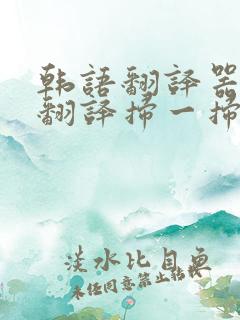 韩語翻譯器
翻譯掃一掃
淡水比目魚
未任同意禁止转载